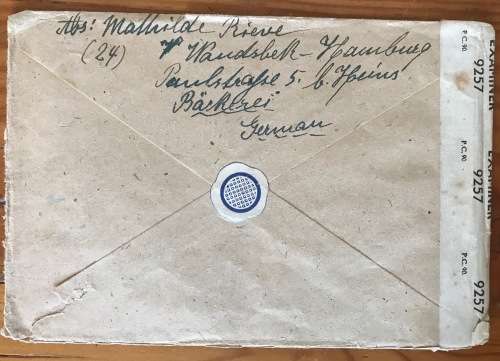 Abs: Mathilde Rieve
(24) Wandsbek-Hamburg
Paulstraße 5. b. Heins
Bäckerei
German
P.C. 90.
EXAMINER
9257
P.C. 90.
EXAMINER
9257
P.C. 90.
9257